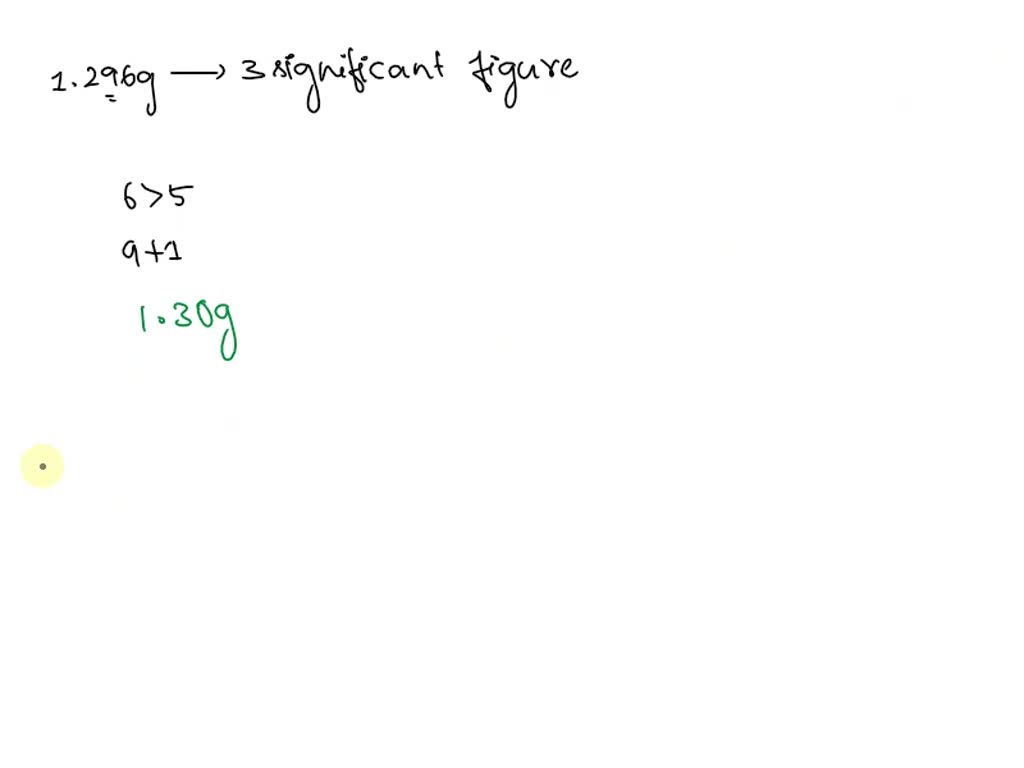 1.296g → 3 significant figure
6>5
9+1
1.30g